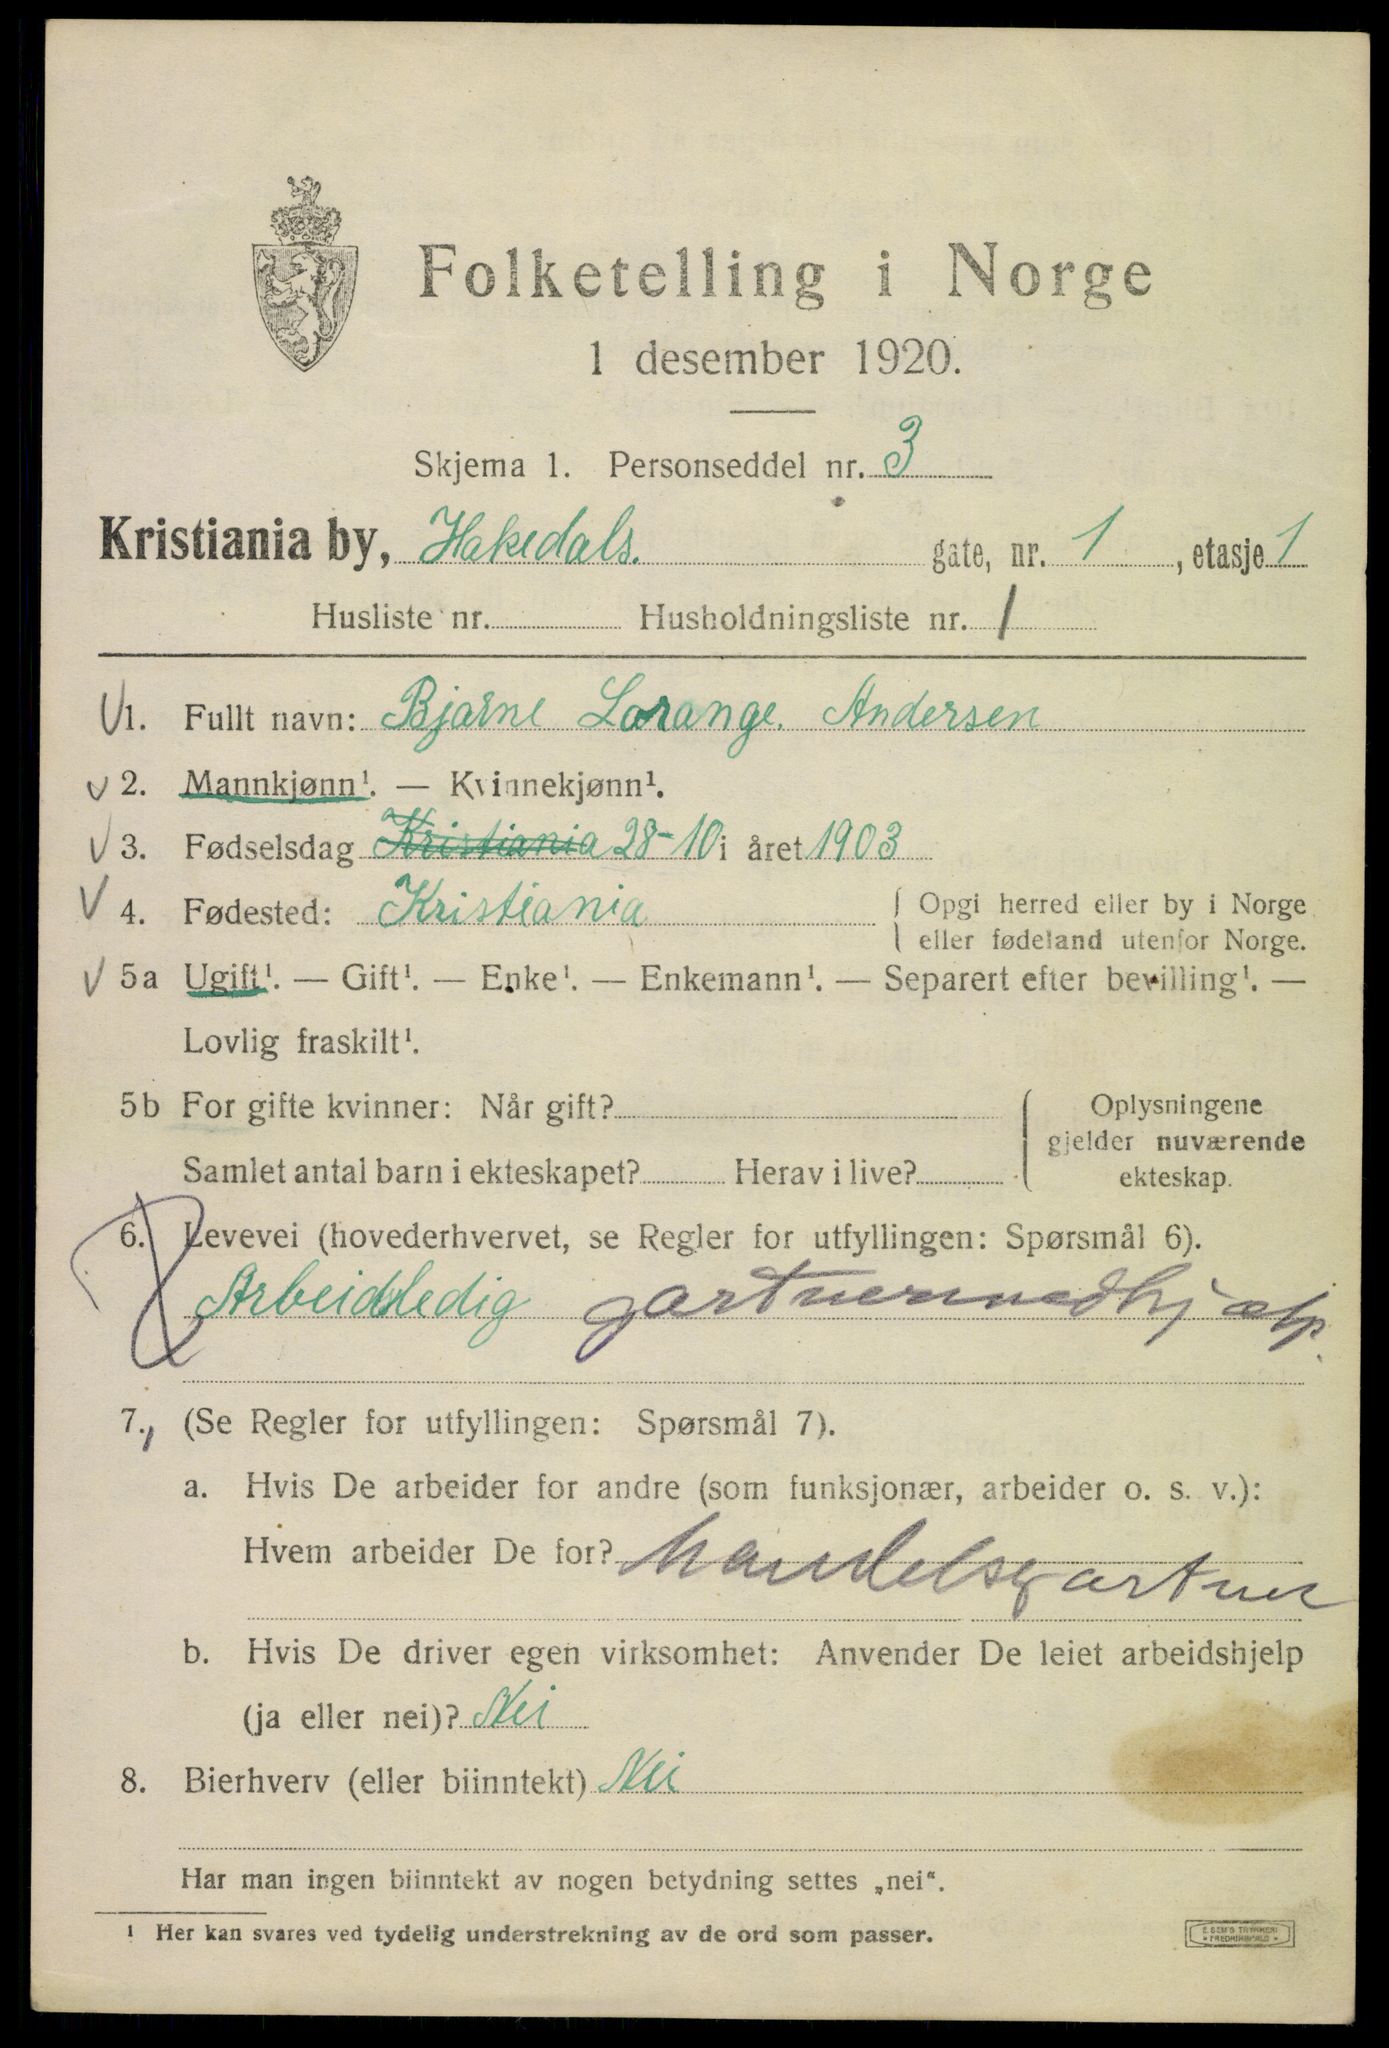 Folketelling i Norge
1 desember 1920.
Skjema 1. Personseddel nr. 3
Kristiania by, Hakedals. gate, nr. 1, etasje 1
Husliste nr. Husholdningsliste nr. 1
1. Fullt navn: Bjarne Lorange. Andersen
2. Mannkjønn¹. — Kvinnekjønn¹.
3. Fødselsdag Kristiania 28-10 i året 1903
4. Fødested: Kristiania { Opgi herred eller by i Norge
eller fødeland utenfor Norge.
5a Ugift¹. — Gift¹. — Enke¹. — Enkemann¹. — Separert efter bevilling¹. —
Lovlig fraskilt¹.
5b For gifte kvinner: Når gift? { Oplysningene
gjelder nuværende
Samlet antal barn i ekteskapet? Herav i live? ekteskap.
6. Levevei (hovederhvervet, se Regler for utfyllingen: Spørsmål 6).
Arbeidsledig gartnermedhjælp.
7. (Se Regler for utfyllingen: Spørsmål 7).
a. Hvis De arbeider for andre (som funksjonær, arbeider o. s. v.):
Hvem arbeider De for? handelsgartner
b. Hvis De driver egen virksomhet: Anvender De leiet arbeidshjelp
(ja eller nei)? Nei
8. Bierhverv (eller biinntekt) Nei
Har man ingen biinntekt av nogen betydning settes „nei“.
¹ Her kan svares ved tydelig understrekning av de ord som passer.
E SEM'S TRYKKERI
* FREDRIKSHALD *